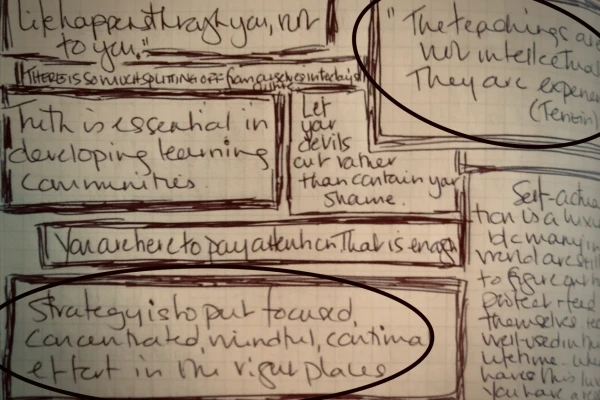 Life happens through you, not
to you."
THERE IS SO MUCH SPLITTING OFF from ourselves in today's
culture
Truth is essential in
developing learning
communities.
Let
your
devils
out rather
than contain your
shame.
You are here to pay attention. That is enough
Strategy is to put focused,
concentrated, mindful, continua
effort in the right places
"The teachings are
not intellectual
They are experien
(Tenzin)
Self-actua
tion is a luxu
bc many in
world are still
to figure out h
protect + feed
themselves
well-used in th
lifetime.
have this lu
You have a res